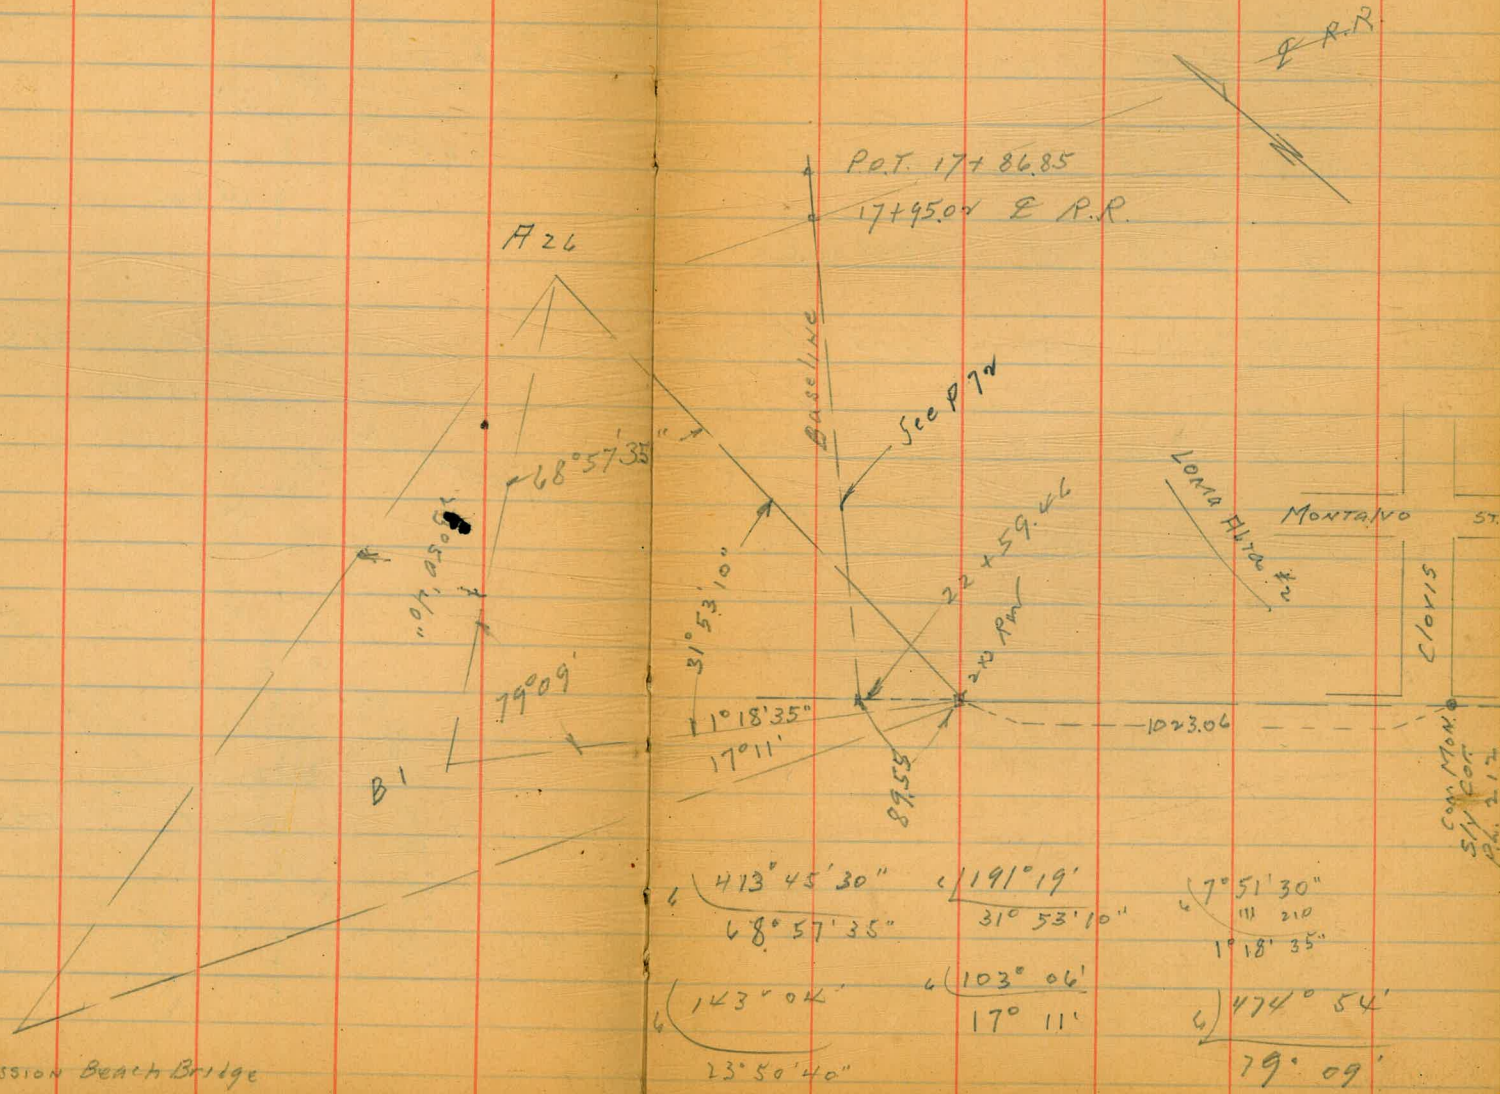 ℄ R.R.
N
P.O.T. 17+86.85
17+95.02 ℄ R.R.
A 26
Baseline
See P 72
68°57'35"
23°50'40"
31°53'10"
22+59.46
2x2
Loma Alta
#2
Montalvo ST.
Clovis
79°09'
1°18'35"
17°11'
B 1
89.55
1023.06
Con. Mon.
S'ly Cor.
212
6 413°45'30"
68°57'35"
6 191°19'
31°53'10"
6 7°51'30"
111 210
1°18'35"
6 143°04'
23°50'40"
6 103°06'
17°11'
6 474°54'
79°09'
ssion Beach Bridge